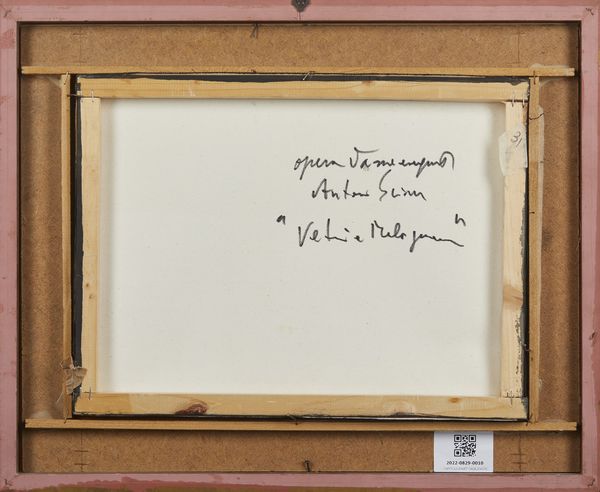 opera da me eseguita
Antonio
"Vetri e Melograni"
31
2022-0829-0010